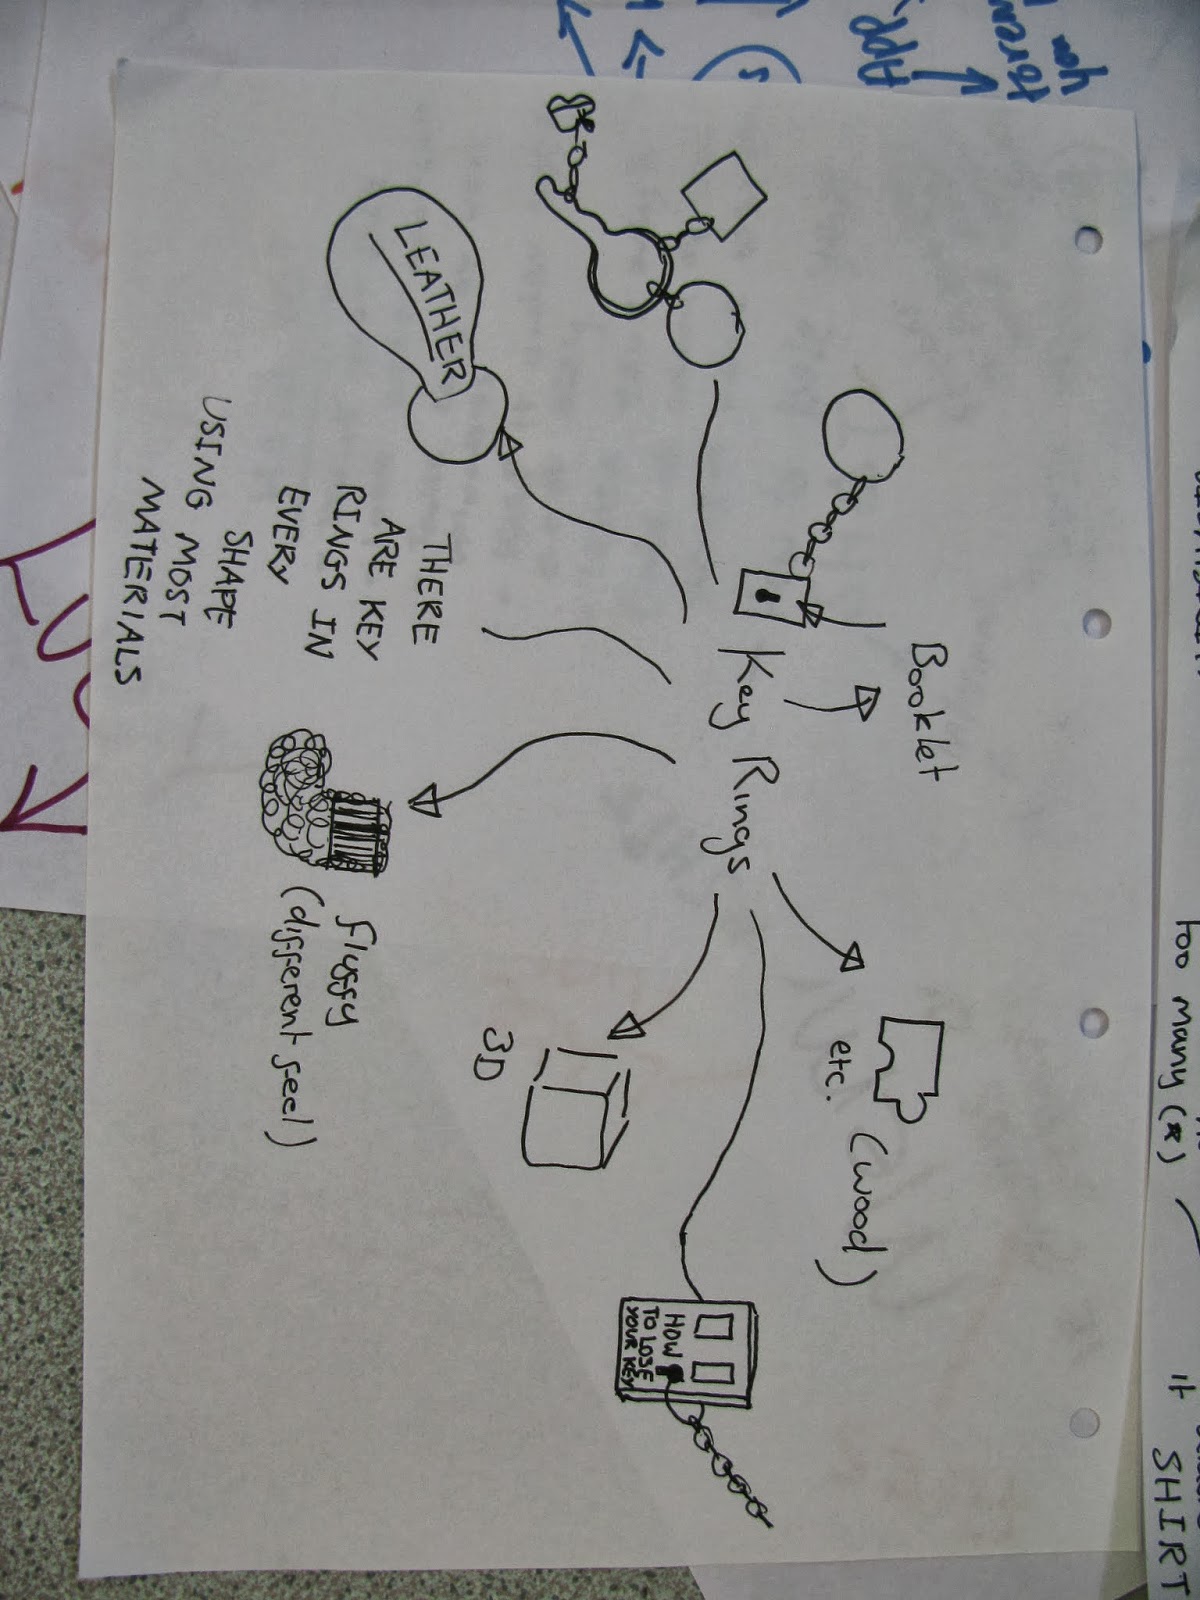 Booklet
Key Rings
etc.
(wood)
LEATHER
THERE
ARE KEY
RINGS IN
EVERY
SHAPE
USING MOST
MATIERIALS
fluffy
(different feel)
3D
HOW
TO LOSE
YOUR KEY
App
you
too many (R)
it
SHIRT